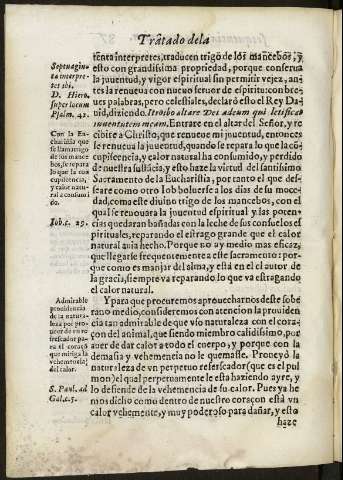 Trãtado dela
tenta interpretes, traducen trigo de los mancebos, y
esto con grandissima propriedad, porque conserua
la juuentud, y vigor espiritual sin permitir vejez, an-
tes la renueua con nueuo feruor de espiritu: con bre-
ues palabras, pero celestiales, declaró esto el Rey Da-
uid, diziendo. Itroibo altare Dei adeum qui letificat
iuuentutem meam. Entrare en el altar del Señor, y re
cibire a Christo, que renueue mi juuentud, entonces
se renueua la juuentud, quando se repara lo que la cõ
cupiscencia, y calor natural ha consumido, y perdido
de nuestra sustãcia, y esto haze la virtud del santissimo
Sacramento de la Eucharistia, por tanto el que des-
seare como otro Iob boluerse a los dias de su moce-
dad, come este diuino trigo de los mancebos, con el
qual se renouara la juuentud espiritual y las poten-
cias quedaran bañadas con la leche de sus consuelos es
pirituales, reparando el estrago grande que el calor
natural auia hecho. Porque no ay medio mas eficaz,
que llegarse frequentemente a este sacramento: por-
que como es manjar del alma, y està en el el autor de
la gracia, siempre va reparando lo que va estragando
el calor natural.
Y para que procuremos aprouecharnos deste sobe
rano medio, consideremos con atencion la prouidencia
tan admirable de que vso naturaleza con el cora-
çon del animal, que siendo miembro calidissimo, por
auer de dar calor a todo el cuerpo, y porque con la
demasia y vehemencia no le quemasse. Proueyò la
naturaleza de vn perpetuo refrescador (que es el pul
mon) el qual perpetuamente le esta haziendo ayre, y
lo defiende de la vehemencia de su calor. Pues ya he
mos dicho como dentro de nuestro coraçon està vn
calor vehemente, y muy poderoso para dañar, y esto
haze
Septuagin-
ta interpre-
tes ibi.
D. Hiero.
super locum
Psalm. 42.
Con la Eu-
charistia que
se llama trigo
de los mance
bos, se repara
lo que la con
cupiscencia,
y calor natu-
ral a consumi
do.
Iob. c. 29.
Admirable
prouidencia
de la natura-
leza por pro-
ueer de vn re
frescador pa-
ra el coraçõ
que mitiga la
vehemencia
del calor.
S. Paul. ad
Gal. c. 5.